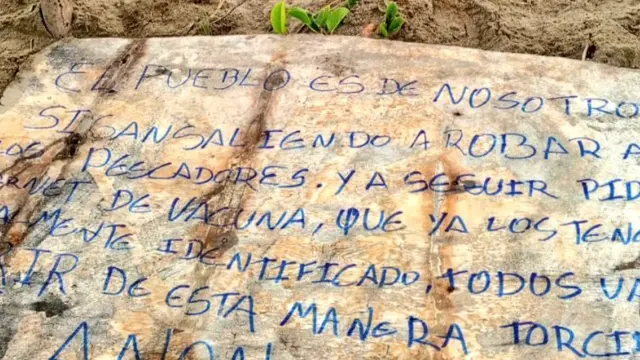 EL PUEBLO ES DE NOSOTRO
SIGANSALIENDO A ROBAR A
LOS PESCADORES. Y A SEGUIR PID
ERNET DE VACUNA, QUE YA LOS TENE
ALMENTE IDENTIFICADO, TODOS VA
IR DE ESTA MANERA TORCI